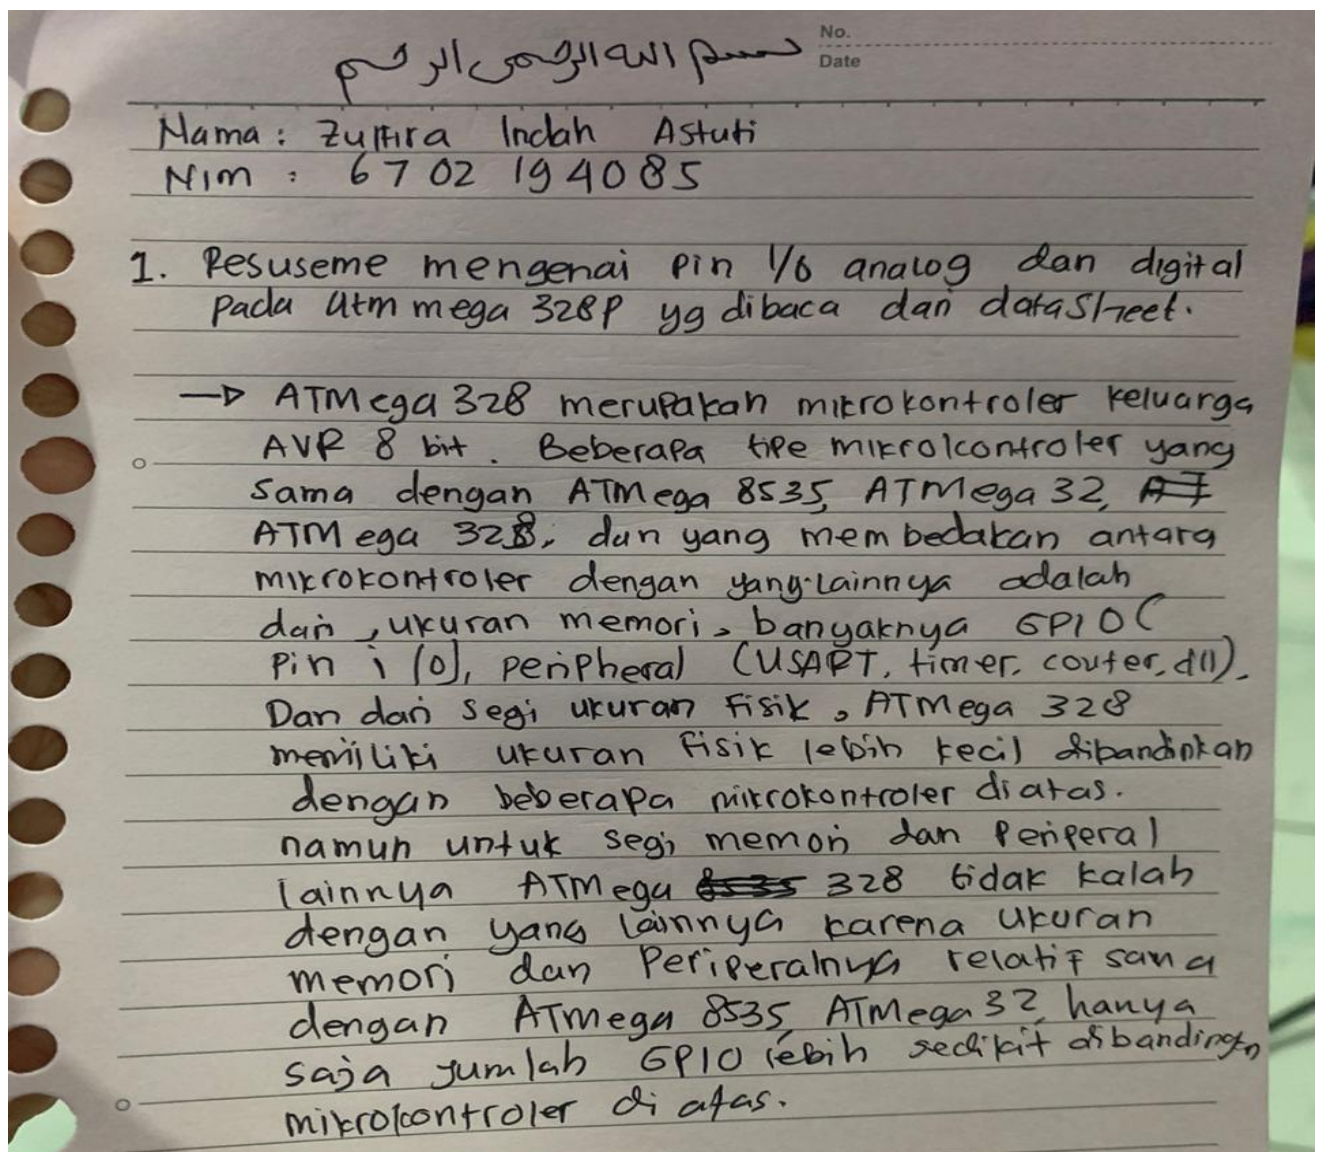 بسم الله الرحمن الرحيم
No.
Date
Nama : Zulfira Indah Astuti
Nim : 6702194085
1. Resuseme mengenai pin I/O analog dan digital
pada Atm mega 328P yg dibaca dari datasheet.
→ ATMega 328 merupakan mikrokontroler keluarga
AVR 8 bit. Beberapa tipe mikrokontroler yang
sama dengan ATMega 8535, ATMega 32,
ATMega 328, dan yang membedakan antara
mikrokontroler dengan yang lainnya adalah
dari, ukuran memori, banyaknya GPIO (
Pin i (0), peripheral (USART, timer, couter, dll).
Dan dari segi ukuran fisik, ATMega 328
memiliki ukuran fisik lebih kecil dibandinkan
dengan beberapa mikrokontroler diatas.
namun untuk segi memori dan Periperal
lainnya ATMega 328 tidak kalah
dengan yang lainnya karena ukuran
memori dan Periperalnya relatif sama
dengan ATMega 8535, ATMega 32, hanya
saja jumlah GPIO lebih sedikit dibandingn
mikrokontroler di atas.